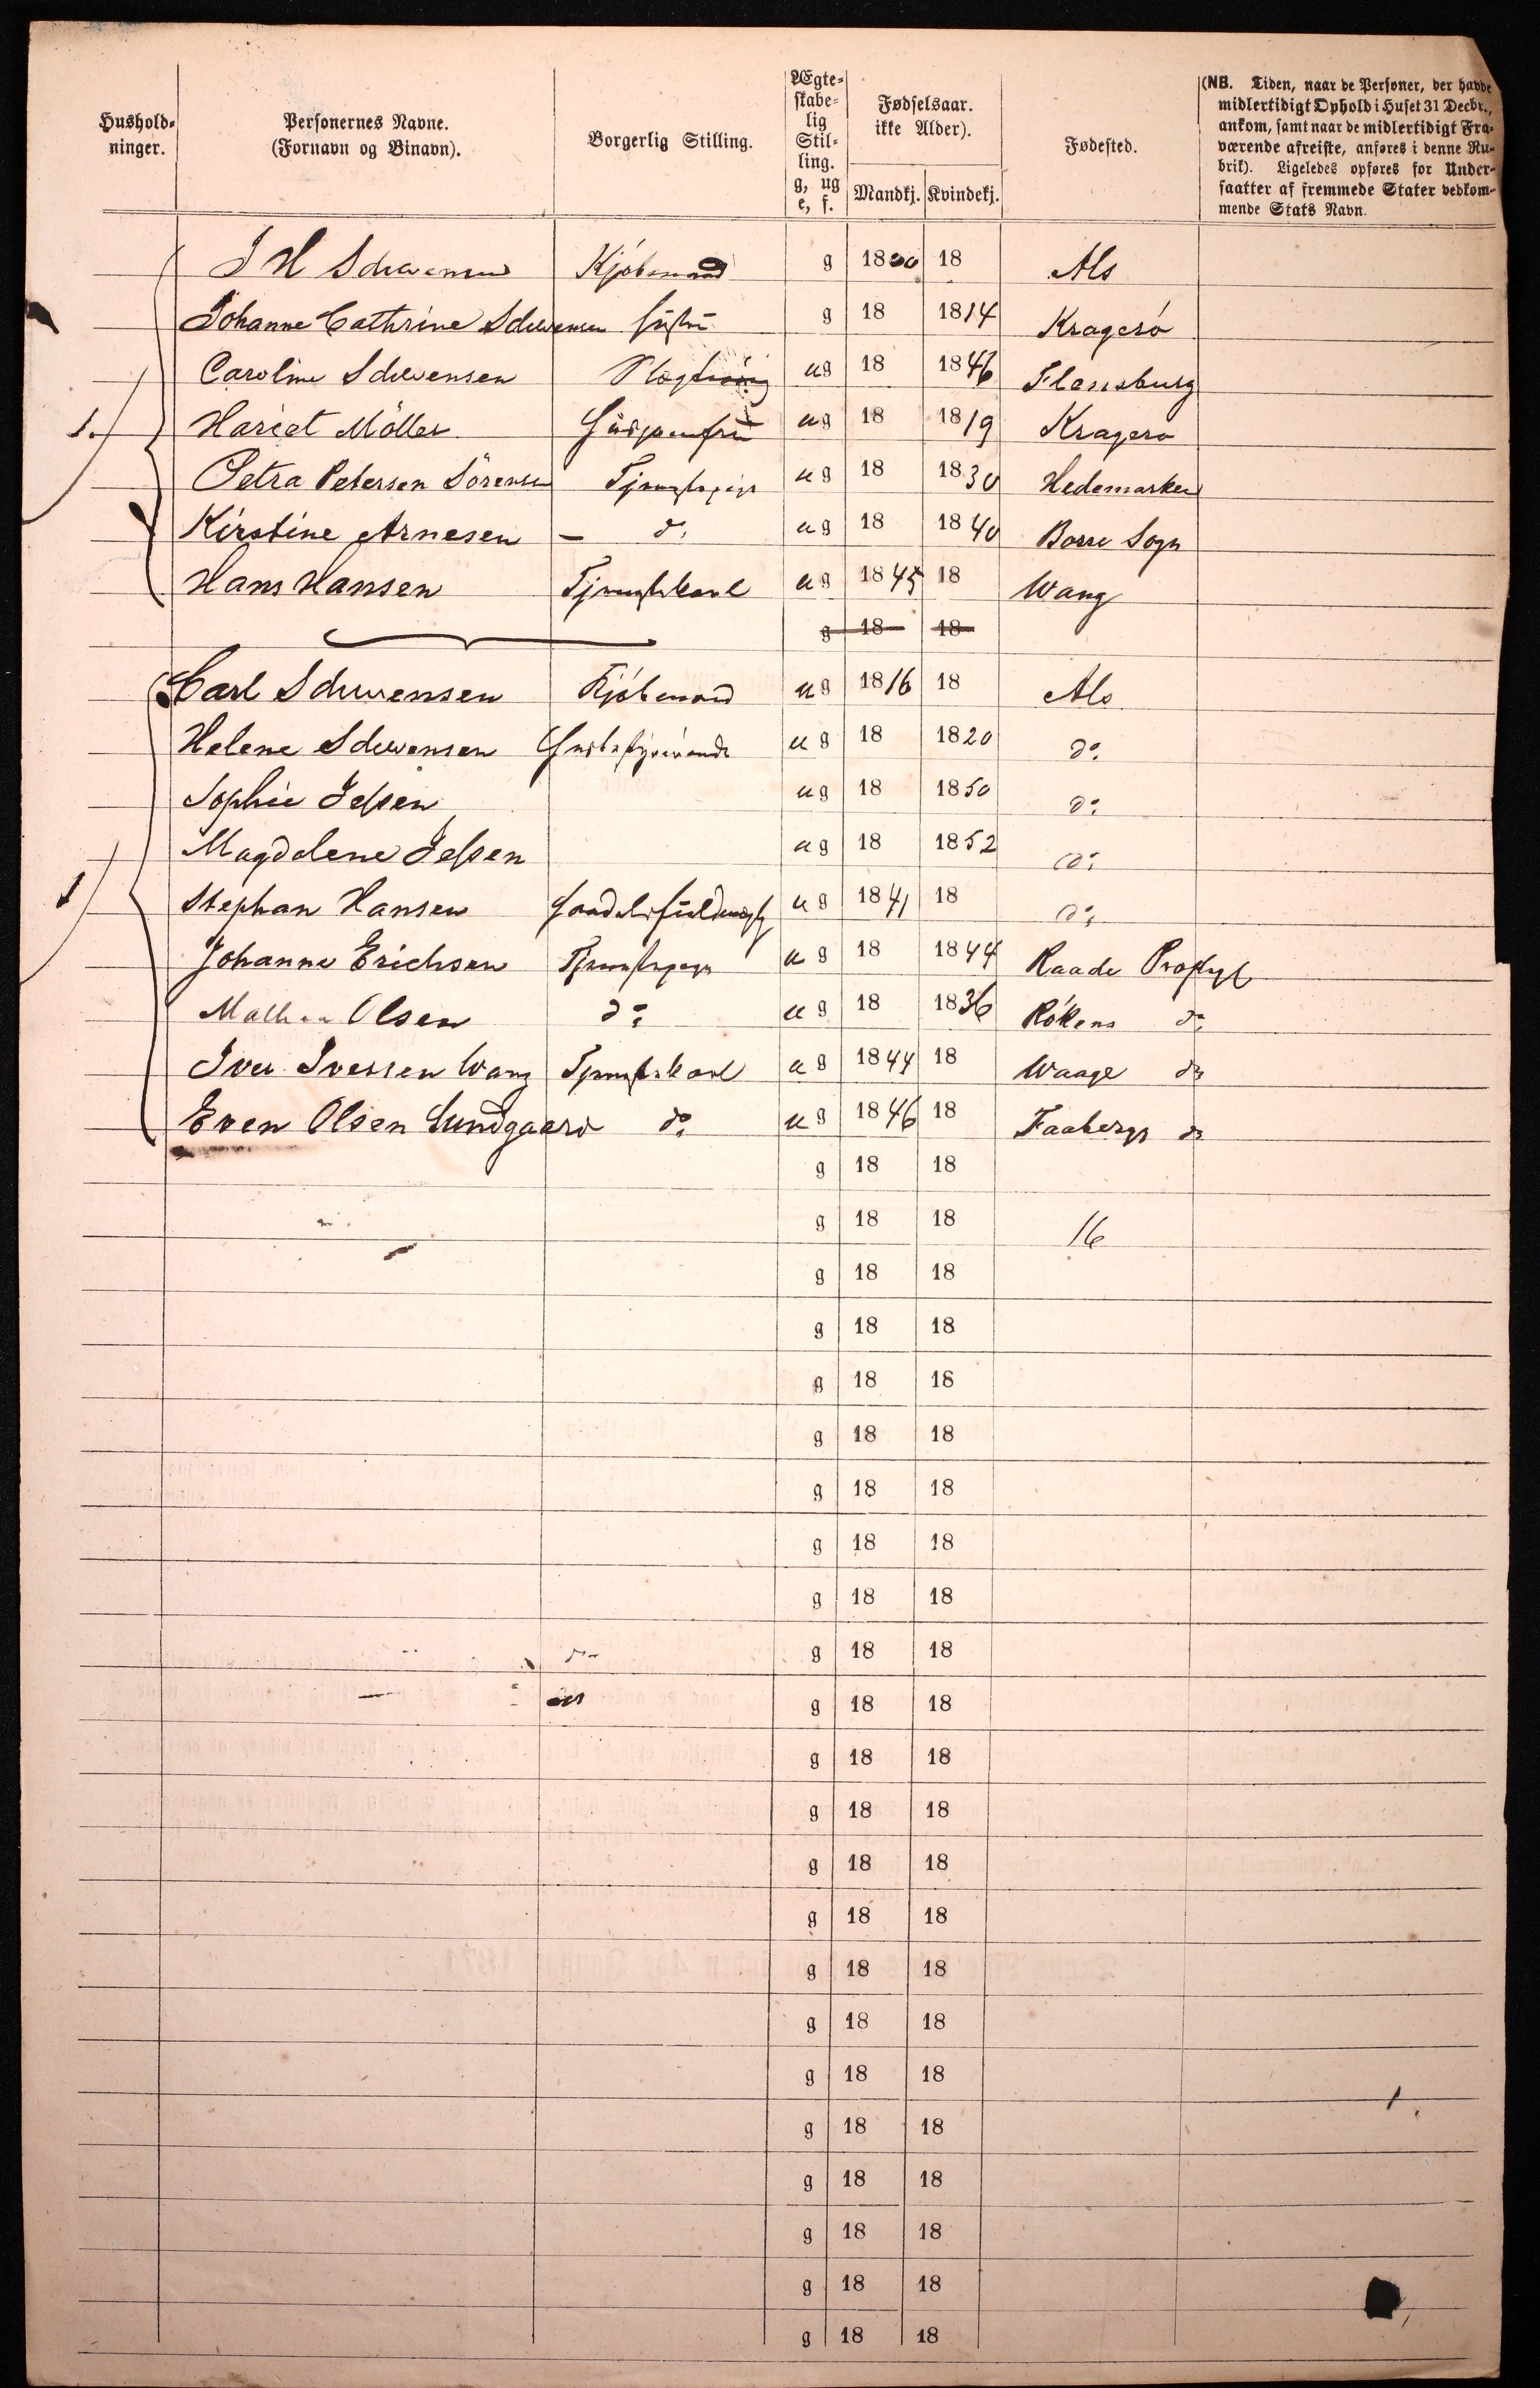 Hushold-
ninger.
Personernes Navne.
(Fornavn og Binavn).
Borgerlig Stilling.
Ægte-
skabe-
lig
Stil-
ling.
g, ug
e, f.
Fødselsaar.
ikke Alder).
Mandkj. Kvindekj.
Fødested.
(NB. Tiden, naar de Personer, der havde
midlertidigt Ophold i Huset 31 Decbr.,
ankom, samt naar de midlertidigt Fra-
værende afreiste, anføres i denne Ru-
brik). Ligeledes opføres for Under-
saatter af fremmede Stater vedkom-
mende Stats Navn.
J H Schwensen Kjøbmand g 1800 18 Als
Johanne Cathrine Schwensen Hustru g 18 1814 Kragerø
Caroline Schwensen ug 18 1846 Flensburg
1. Hariet Möller Huusjomfru ug 18 1819 Kragerø
Petra Petersen Sörensen Tjenestepige ug 18 1830 Hedemarken
Kirstine Arnesen – do. ug 18 1840 Borre Sogn
Hans Hansen Tjenestekarl ug 1845 18 Wang
g 18 18
Carl Schwensen Kjøbmand ug 1816 18 Als
Helene Schwensen Huusbestyrerinde ug 18 1820 do.
Sophie Jessen ug 18 1850 do.
Magdalene Jessen ug 18 1852 do.
1 Stephan Hansen Handelsfuldmægtig ug 1841 18 do.
Johanne Erichsen Tjenestepige ug 18 1844 Raade Præstgl
Olsen do. ug 18 1836 Rökens do.
Iver Iversen Wang Tjenestekarl ug 1844 18 Waage do
Even Olsen Lundgaard do. ug 1846 18 Faabergs do
g 18 18
g 18 18 16
g 18 18
g 18 18
g 18 18
g 18 18
g 18 18
g 18 18
g 18 18
g 18 18
g 18 18
g 18 18
g 18 18
g 18 18
g 18 18
g 18 18
g 18 18
g 18 18
g 18 18
g 18 18
g 18 18
g 18 18
g 18 18